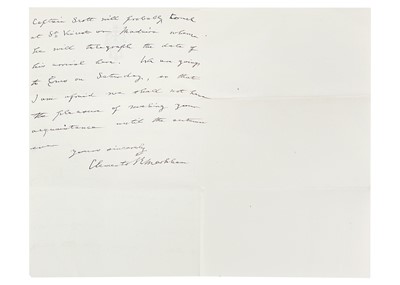 Captain Scott will probably touch
at St Vincent or Madeira where
he will telegraph the date of
his arrival here. We are going
to on Saturday, so that
I am afraid we shall not have
the pleasure of making your
acquaintance until the
ever
yours sincerely
Clements R Markham